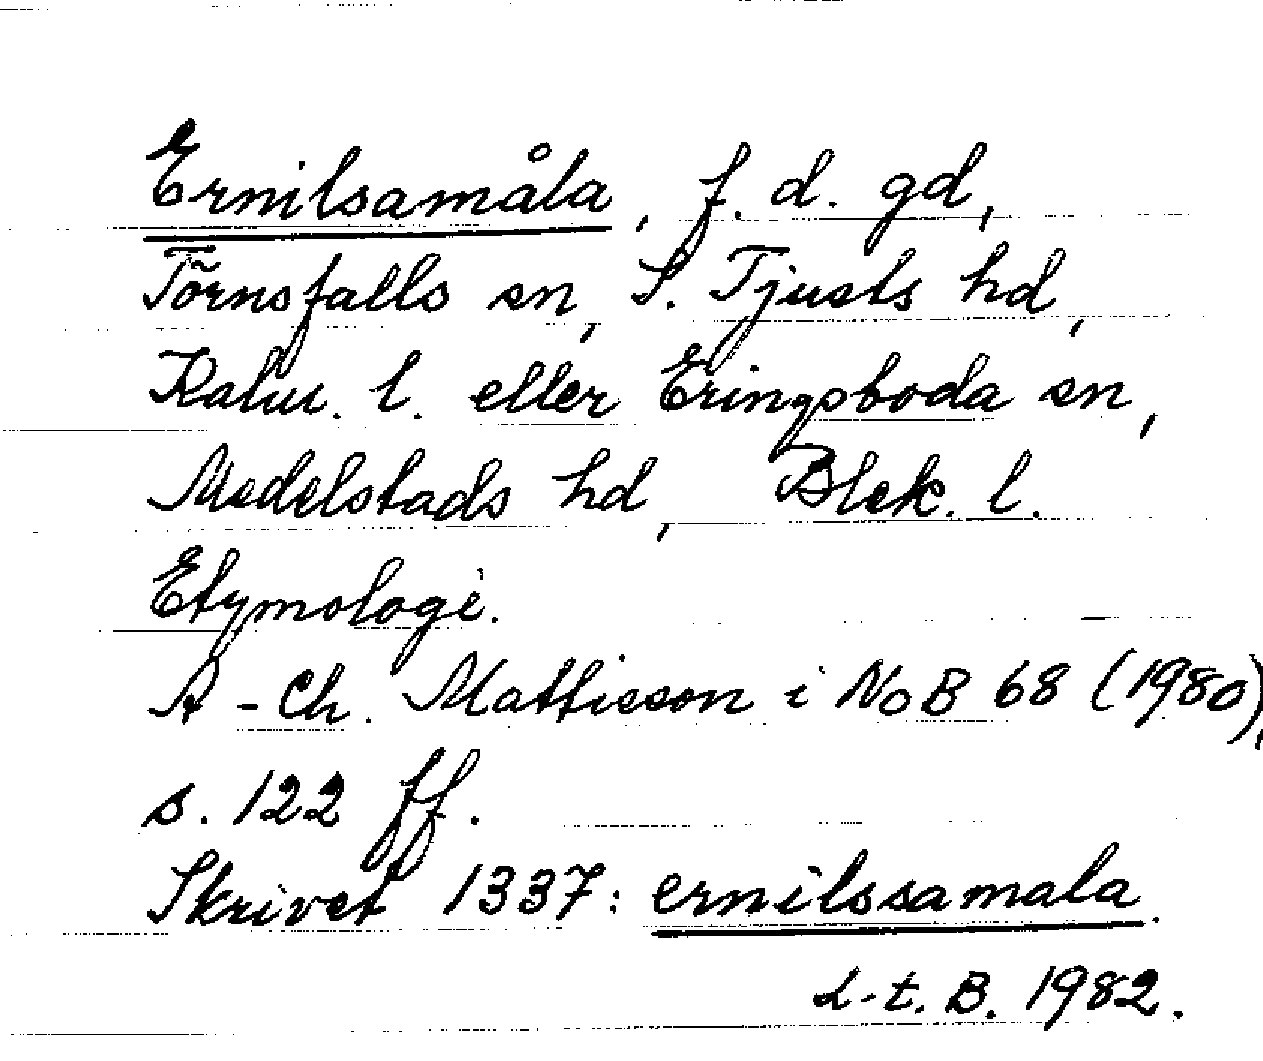 Ernilsamåla, f. d. gd,
Törnsfalls sn, S. Tjusts hd,
Kalm. l. eller Eringsboda sn,
Medelstads hd, Blek. l.
Etymologi.
A-Ch. Mattisson i NoB 68 (1980),
s. 122 ff.
Skrivet 1337: ernilssamala.
L-t. B. 1982.